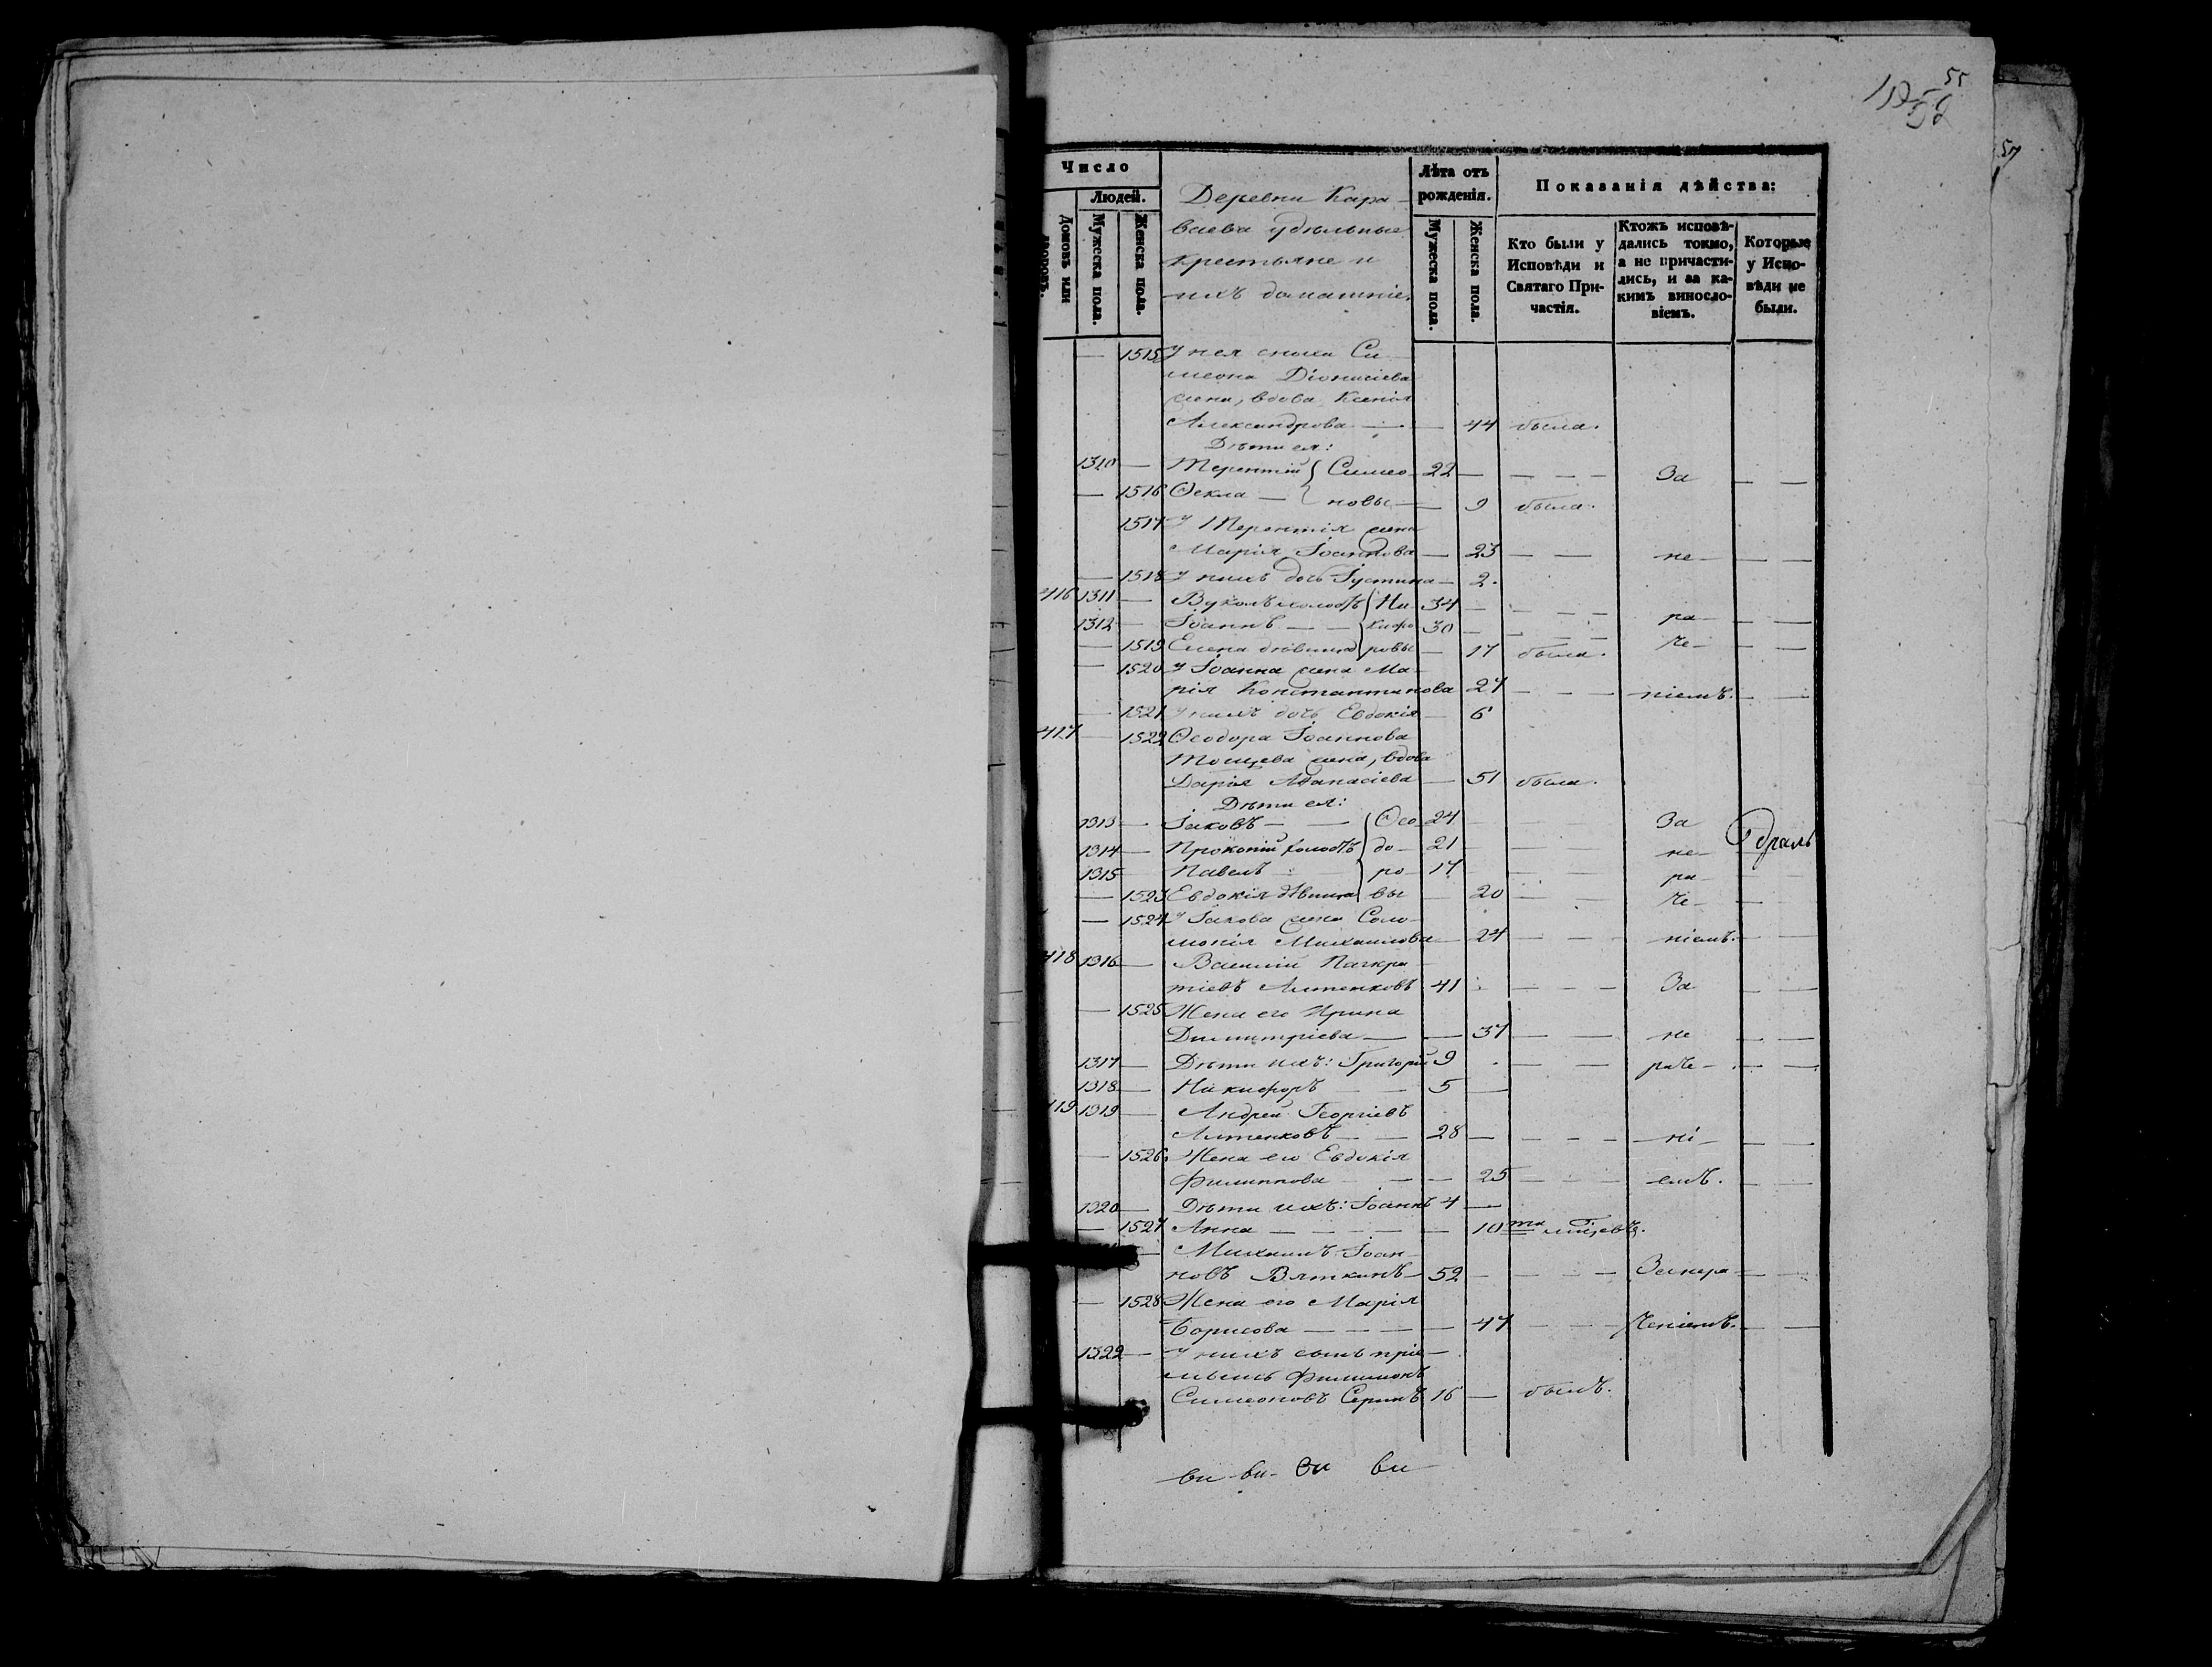 55
52
57
Число
Людей.
Домовъ или дворовъ.
Мужеска пола.
Женска пола.
Деревни Кара-
ваева удѣльные
крестьяне и
ихъ домашніе.
Лѣта отъ рожденія.
Мужеска пола.
Женска пола.
Показанія дѣйства:
Кто были у Исповѣди и Святаго Причастія.
Ктожъ исповѣдались токмо, а не причастились, и за какимъ винословіемъ.
Которые у Исповѣди не были.
— 1515 У нея сноха Си-
меона Діонисіева
жена, вдова Ксенія
Александрова — — 44 была.
Дѣти ея:
1310 — Терентій { Симео- 22 — — — — За — —
— 1516 Ѳекла — { новы — — 9 была.
1517 У Терентія жена
Марія Іоаннова — 23 — — не — — —
— 1518 У нихъ дочь Іустина — 2.
416 1311 — Вуколъ холостъ { Ни- 34 — — — — ра — — —
1312 — Іоаннъ — — кифо- 30 — — — —
— 1519 Елена дѣвица ровы — 17 была. че — — —
— 1520 У Іоанна жена Ма-
рія Константинова 27 — — ніемъ. — —
— 1521 У нихъ дочь Евдокія — 6
417 — 1522 Ѳеодора Іоаннова
жена, вдова
Дарія Аѳанасіева — 51 была.
Дѣти ея:
1313 — Іаковъ — — { Ѳео- 24 — — — За
1314 — Прокопій холостъ до- 21 — — — не —
1315 — Павелъ — ро- 17 — — ра — — —
— 1523 Евдокія дѣвица вы — 20 — — че — —
— 1524 У Іакова жена Соло-
монія Михаилова — 24 — — ніемъ. — —
418 1316 — Василій Панкра-
тіевъ Алтенковъ 41 — — — За — —
— 1525 Жена его Ирина
Димитріева — — 37 — — не — —
1317 — Дѣти ихъ: Григорій 9 — — — раче — — —
1318 — Никифоръ — — 5 —
419 1319 — Андрей Георгіевъ
Алтенковъ — — 28 — — — — ні — — —
— 1526 Жена его Евдокія
Филиппова — — — 25 — — емъ. — —
1320 — Дѣти ихъ: Іоаннъ 4 —
— 1527 Анна — — — — — 10
— Михаилъ Іоан-
новъ Вяткинъ — 52 — — — Занера- — —
— 1528 Жена его Марія
Борисова — — — — 47 — — ченіемъ. — —
1322 — У нихъ сынъ пріе-
мышъ Филимонъ
Симеоновъ 16 — былъ.
ви ви ви ви